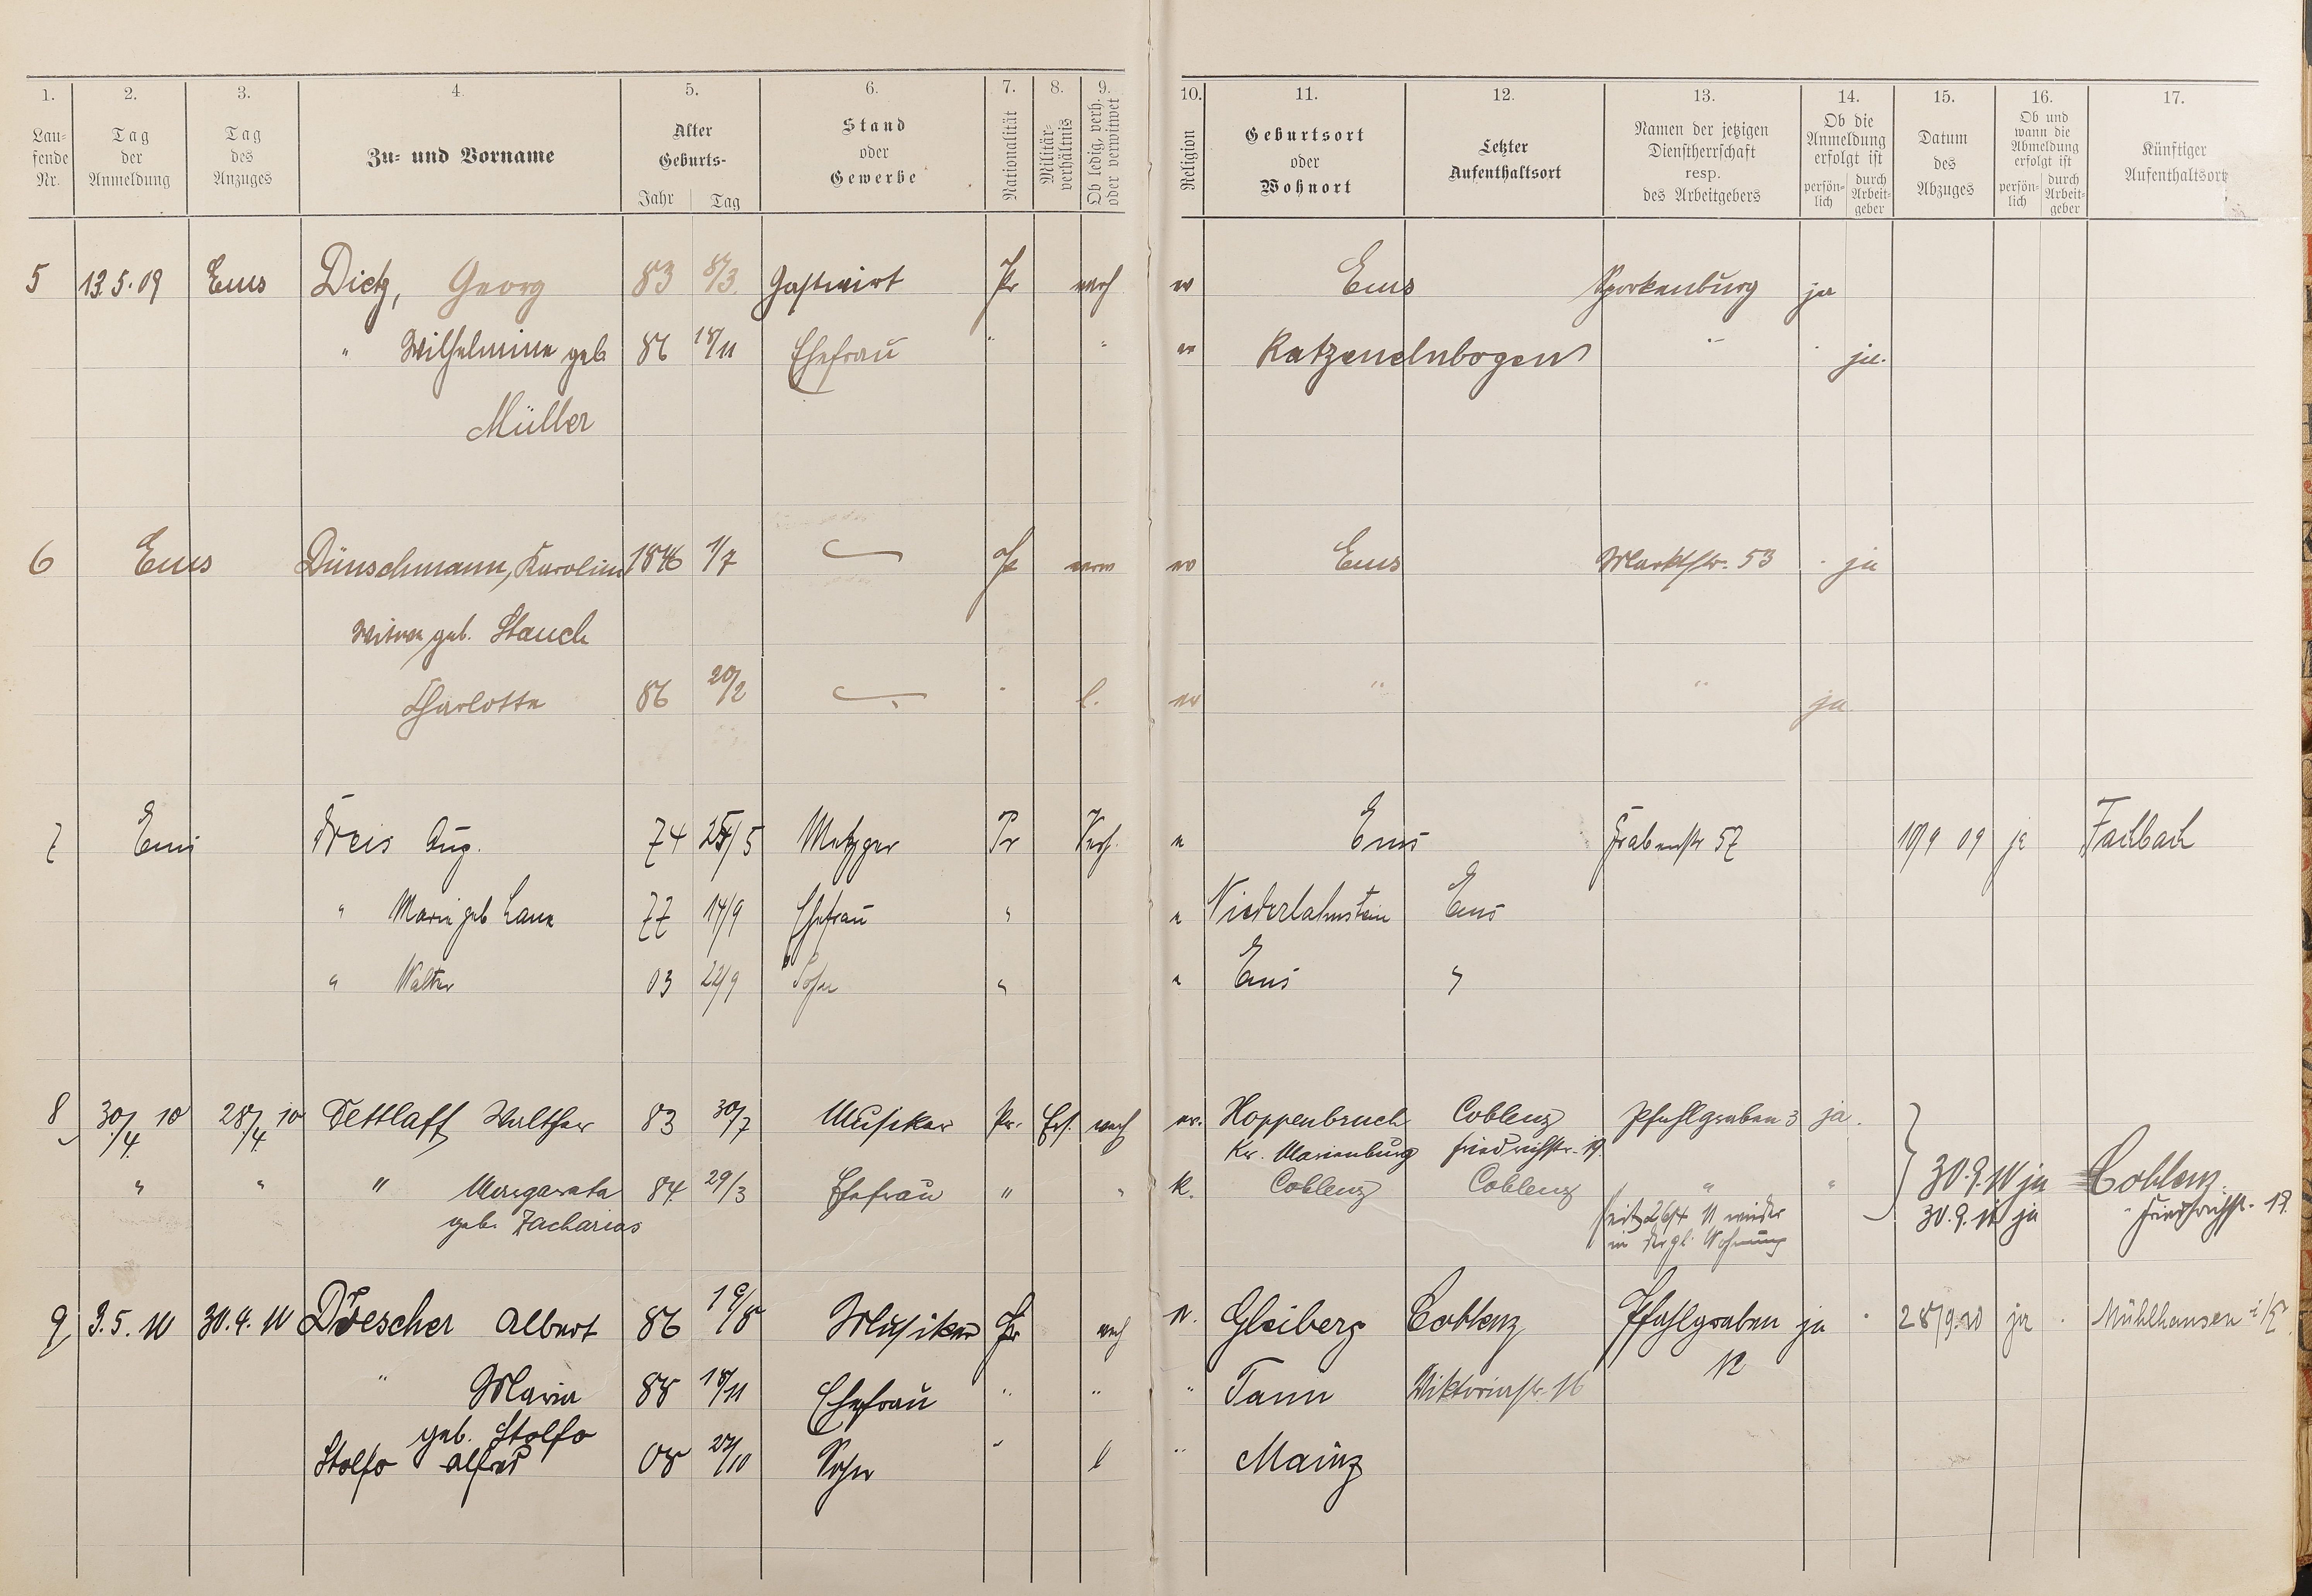 1. 2. 3. 4. 5. 6. 7. 8. 9. 10. 11. 12. 13. 14. 15. 16. 17.
Laufende Nr. Tag der Anmeldung Tag des Anzuges Zu- und Vorname Alter Geburts- Jahr Tag Stand oder Gewerbe Nationalität Militär-verhältnis Ob ledig, verh. oder verwitwet Religion Geburtsort oder Wohnort Letzter Aufenthaltsort Namen der jetzigen Dienstherrschaft resp. des Arbeitgebers Ob die Anmeldung erfolgt ist persön-lich durch Arbeit-geber Datum des Abzuges Ob und wann die Abmeldung erfolgt ist persön-lich durch Arbeit-geber Künftiger Aufenthaltsort
5 13.5.09 Ems Dietz, Georg 83 8/3. Gastwirt Pr verh ev Ems Sporkenburg ja
" Wilhelmine geb 86 18/11 Ehefrau " " ev Katzenelnbogen " ja.
Müller
6 Ems Dünschmann, Karoline 1846 1/7 Pr verw ev Ems Marktstr. 53 ja
Witwe geb. Stauch
Charlotte 86 20/2 " l. ev " " ja
7 Ems Freis Aug. 74 25/5 Metzger Pr Verh. e Ems Grabenstr 57 10/9 09 ja Fachbach
" Marie geb 77 14/9 Ehefrau " e Niederlahnstein Ems
" Walter 03 22/9 Sohn " e Ems "
8 30/4. 10 28/4. 10 Tettlaff, Walther 83 30/7 Musiker Pr. Ers. verh ev. Hoppenbruch Coblenz Pfahlgraben 3 ja.
Kr. Marienburg Friedrichstr. 19.
" " " Margareta 84 29/3 Ehefrau " " k. Coblenz Coblenz " " 30.9.10 ja Coblenz
geb. Zacharias seit 26/4 11 wieder 30.9.11 ja Friedrichstr. 19.
in dergl. Wohnung
9 3.5.10 30.4.10 Drescher Albert 86 19/8 Musiker Pr verh ev. Gleiberg Coblenz Pfahlgraben ja 28/9.10 ja Mühlhausen i/E.
12
" Maria 88 18/11 Ehefrau " " " Tann Viktoriastr. 16
geb. Stolfo
Stolfo Alfred 08 27/10 Sohn " l " Mainz